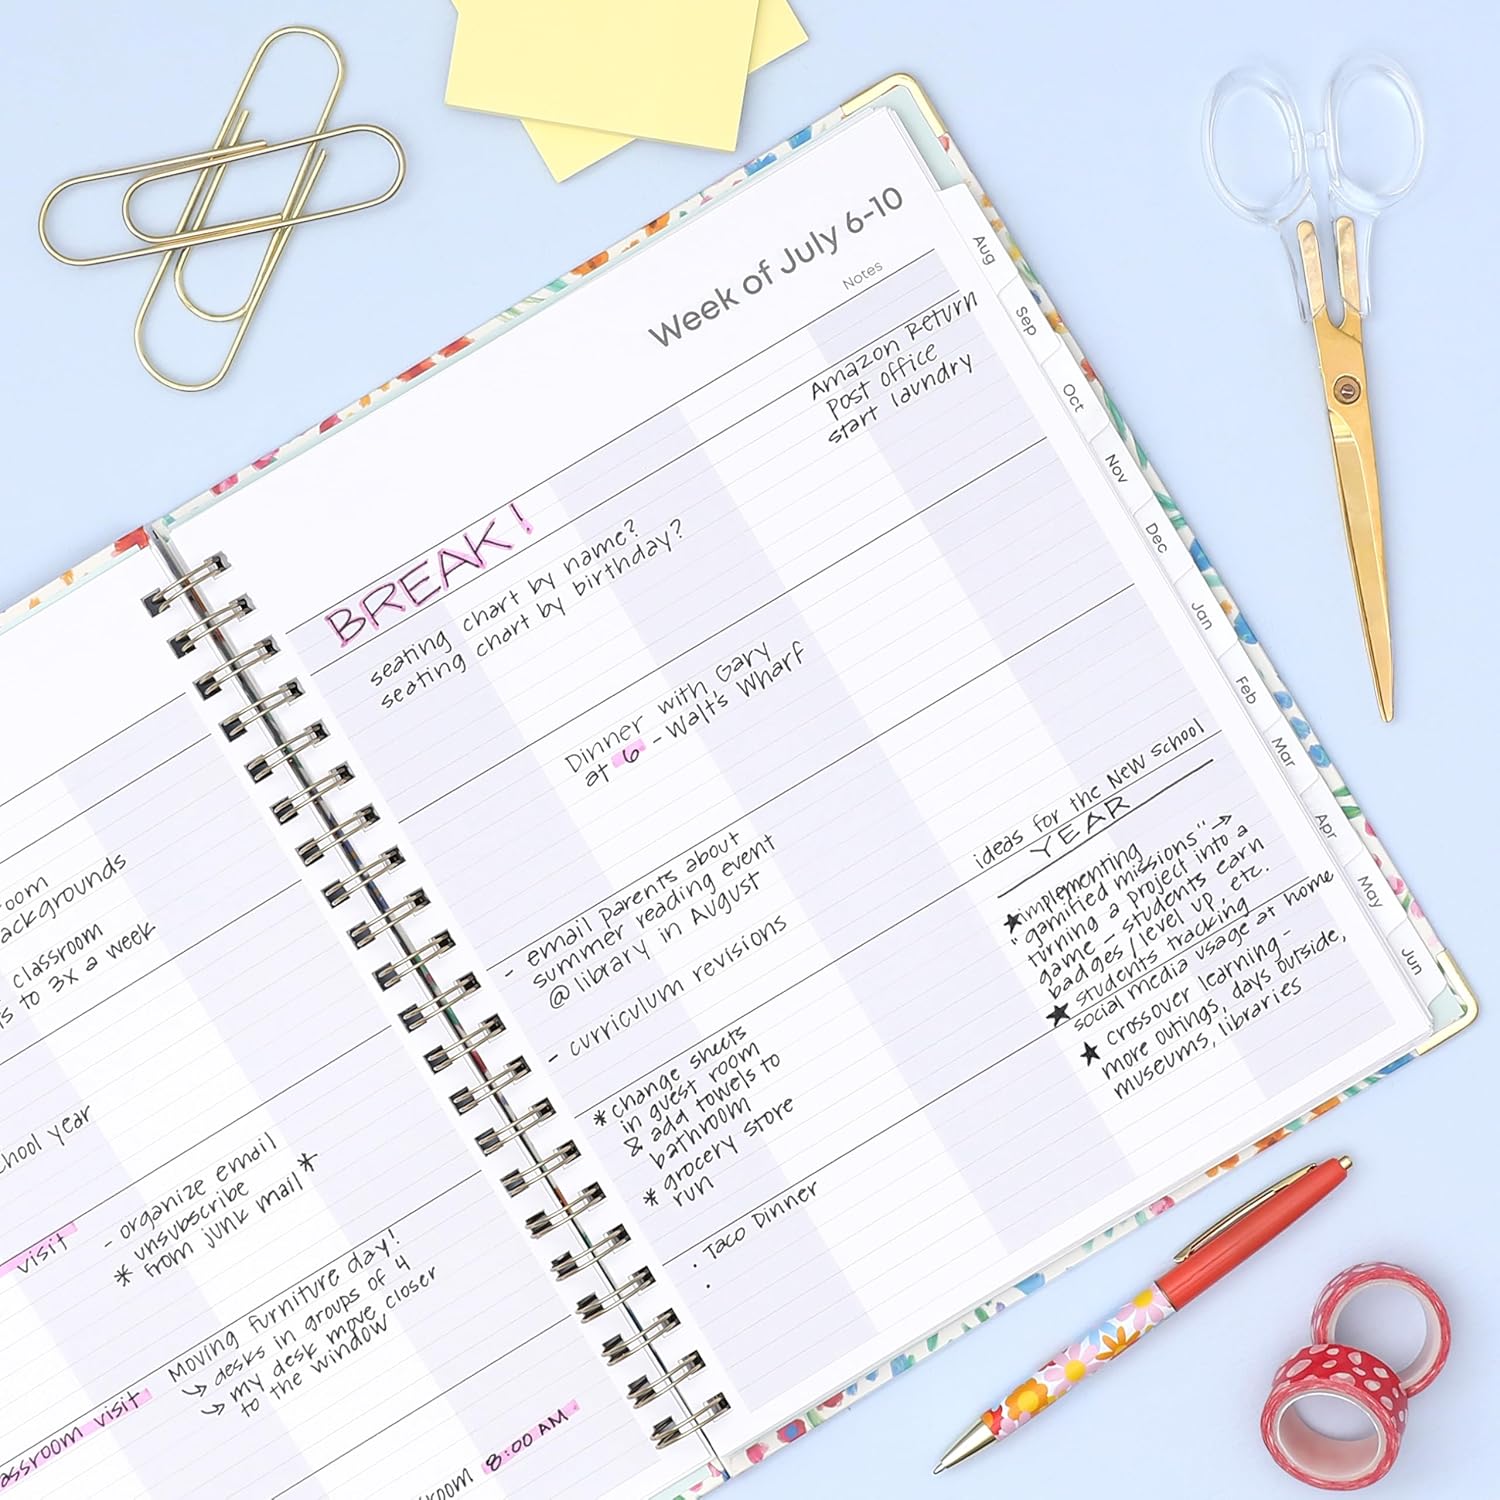 Week of July 6-10
Notes
Amazon Return
Post office
start laundry
BREAK!
seating chart by name?
seating chart by birthday?
Dinner with Gary
at 6 - Walt's Wharf
- email parents about
summer reading event
@ library in August
- curriculum revisions
* change sheets
in guest room
& add towels to
bathroom
* grocery store
run
. Taco Dinner
.
ideas for the New School
YEAR
★implementing
"gamified missions" →
turning a project into a
game - students earn
badges/level up, etc.
★ students tracking
social media usage at home
★ crossover learning -
more outings, days outside,
museums, libraries
Aug
Sep
Oct
Nov
Dec
Jan
Feb
Mar
Apr
May
Jun
classroom
to 3x a week
year
visit
- organize email
unsubscribe
* from junk mail *
Moving furniture day!
↳ desks in groups of 4
↳ my desk move closer
to the window
visit
8:00 AM